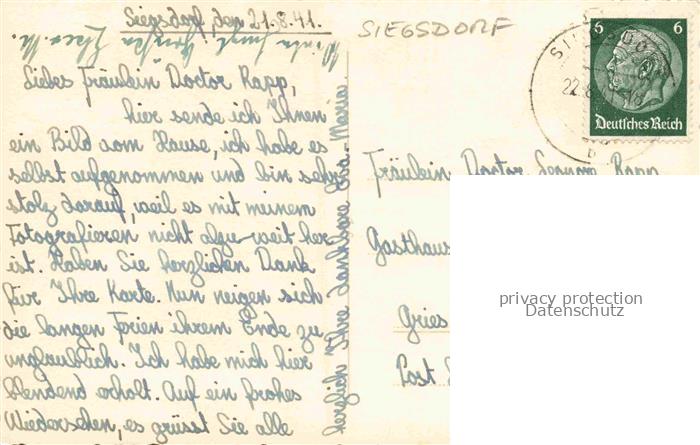 Siegsdorf, den 21.8.41.
SIEGSDORF
Liebes Fräulein Doctor Rapp,
hier sende ich Ihnen
ein Bild vom Hause, ich habe es
selbst aufgenommen und bin sehr
stolz darauf, weil es mit meinem
Fotografieren nicht alzu-weit her
ist. Haben Sie herzlichen Dank
für Ihre Karte. Nun neigen sich
die langen Ferien ihrem Ende zu
unglaublich. Ich habe mich hier
blendend erholt. Auf ein frohes
Wiedersehen, es grüsst Sie alle
herzlich Ihre dankbare Eva-Maria
6 6
Deutsches Reich
SIEGSDORF
22.8
Fräulein Doctor Rapp
Gasthaus
Gries
Post
privacy protection
Datenschutz